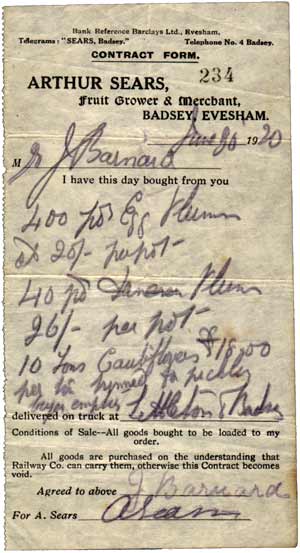 Bank Reference Barclays Ltd., Evesham.
Telegrams: "SEARS, Badsey." Telephone No. 4 Badsey.
CONTRACT FORM.
234
ARTHUR SEARS,
Fruit Grower & Merchant,
BADSEY, EVESHAM.
June 30 1920
M J Barnard
I have this day bought from you
400 pots Egg Plums
at 20/- per pot
40 pots Plums
26/- per pot
10 Tons Cauliflowers
per to
delivered on truck at Littleton & Badsey
Conditions of Sale—All goods bought to be loaded to my
order.
All goods are purchased on the understanding that
Railway Co. can carry them, otherwise this Contract becomes
void.
Agreed to above J Barnard
For A. Sears A Sears